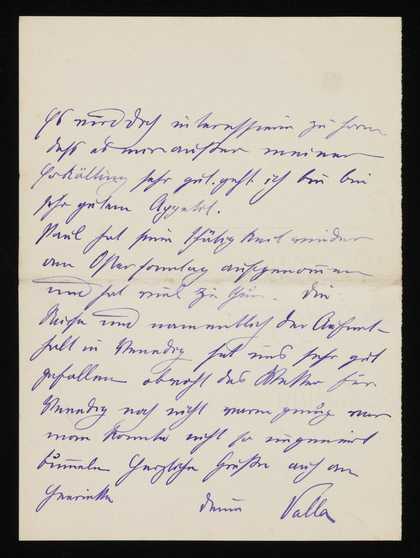 Es wird Dich interessieren zu hören
dass es mir ausser meiner
Erkältung sehr gut geht ich bin bei
sehr gutem Appetit.
Paul hat seine Thätigkeit wieder
am Ostersonntag aufgenommen
und hat viel zu thun. Die
Reise und namentlich der Aufent-
halt in Venedig hat uns sehr gut
gefallen obwohl das Wetter für
Venedig noch nicht warm genug war
man konnte nicht so ungeniert
bummeln Herzliche Grüße auch an
Henriette
Deine Valla